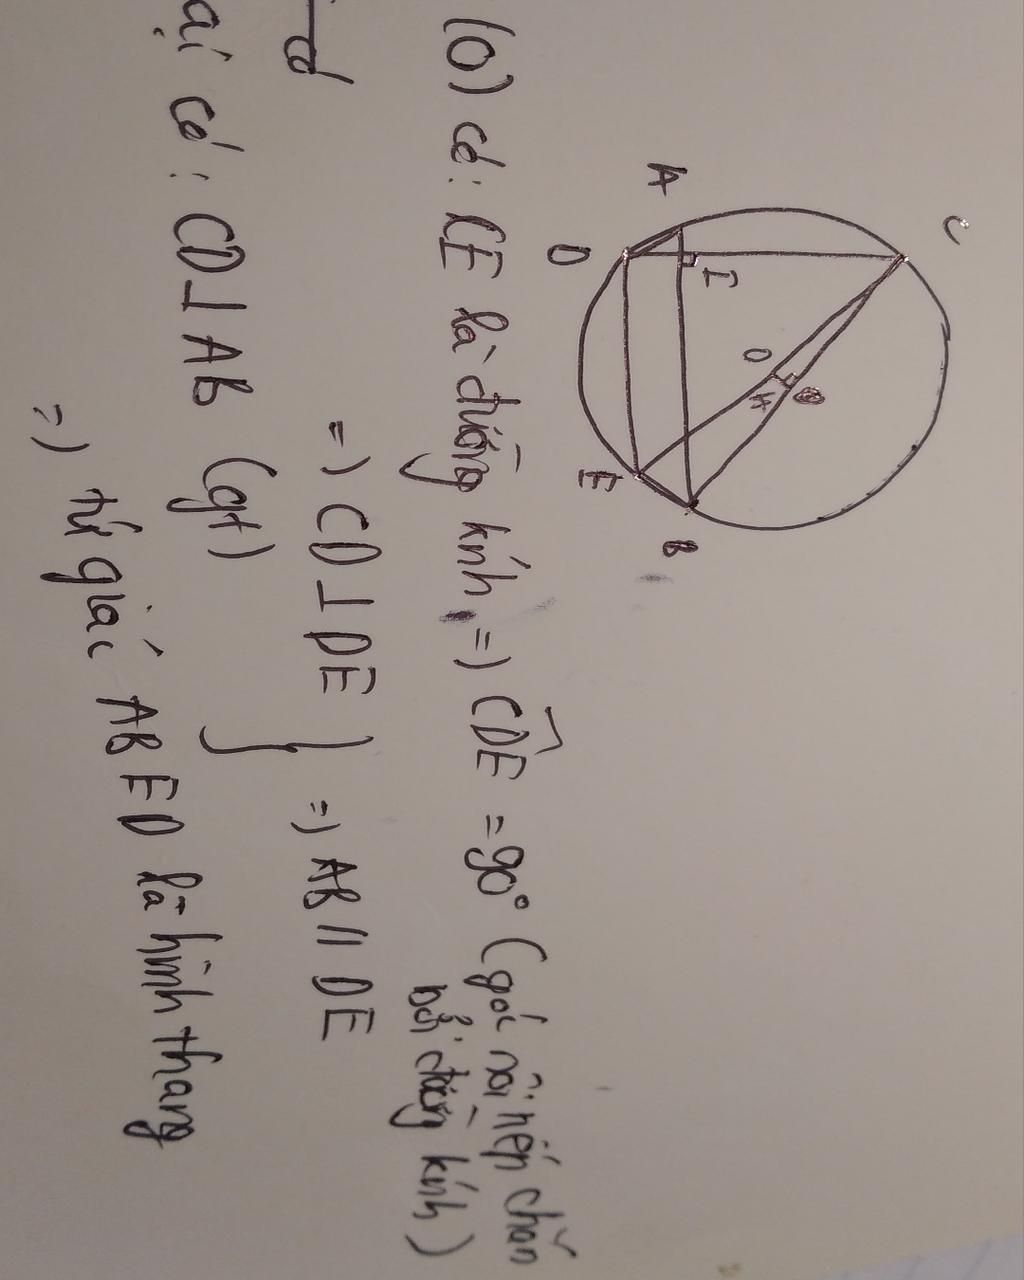 C
A
I
D
O
H
E
B
(O) có: CE là đường kính => CDE = 90° (góc nội tiếp chắn
bởi đường kính)
=> CD ⊥ DE
=> AB // DE
ại có: CD ⊥ AB (gt)
=> tứ giác ABED là hình thang